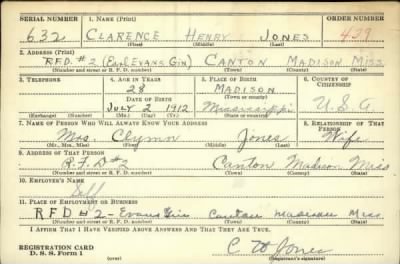 SERIAL NUMBER 1. NAME (Print) ORDER NUMBER
632 CLARENCE HENRY JONES 429
(First) (Middle) (Last)
2. ADDRESS (Print)
R.F.D. #2 (Earl Evans Gin) CANTON MADISON MISS
(Number and street or R. F. D. number) (Town) (County) (State)
3. TELEPHONE 4. AGE IN YEARS 5. PLACE OF BIRTH 6. COUNTRY OF CITIZENSHIP
28 MADISON
DATE OF BIRTH (Town or county)
JULY 2 1912 Mississippi U.S.A.
(Exchange) (Number) (Mo.) (Day) (Yr.) (State or country)
7. NAME OF PERSON WHO WILL ALWAYS KNOW YOUR ADDRESS 8. RELATIONSHIP OF THAT PERSON
Mrs. Jones Wife
(Mr., Mrs., Miss) (First) (Middle) (Last)
9. ADDRESS OF THAT PERSON
R.F.D #2 Canton Madison Miss
(Number and street or R. F. D. number) (Town) (County) (State)
10. EMPLOYER'S NAME
Self
11. PLACE OF EMPLOYMENT OR BUSINESS
RFD #2 - Evans Gin Canton Madison Miss.
(Number and street or R. F. D. number) (Town) (County) (State)
I AFFIRM THAT I HAVE VERIFIED ABOVE ANSWERS AND THAT THEY ARE TRUE.
REGISTRATION CARD
D. S. S. Form 1 C H Jones
(Registrant's signature)